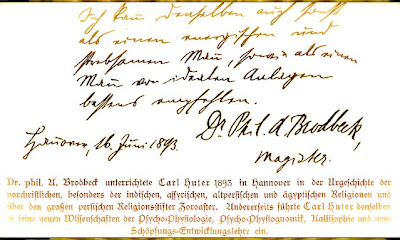 Ich kann denselben auch sonst
als einen energischen und
strebsamen Mann, sowie als einen
Mann von idealen Anlagen
bestens empfehlen.
Hannover, 16. Juni 1893.
Dr. Phil. A. Brodbeck,
Magister.
Dr. phil. A. Brodbeck unterrichtete Carl Huter 1893 in Hannover in der Urgeschichte der
vorchristlichen, besonders der indischen, assyrischen, altpersischen und ägyptischen Religionen und
über den großen persischen Religionsstifter Zoroaster. Andererseits führte Carl Huter denselben
in seine neuen Wissenschaften der Psycho-Physiologie, Psycho-Physiognomik, Kallisophie und neue
Schöpfungs-Entwicklungslehre ein.